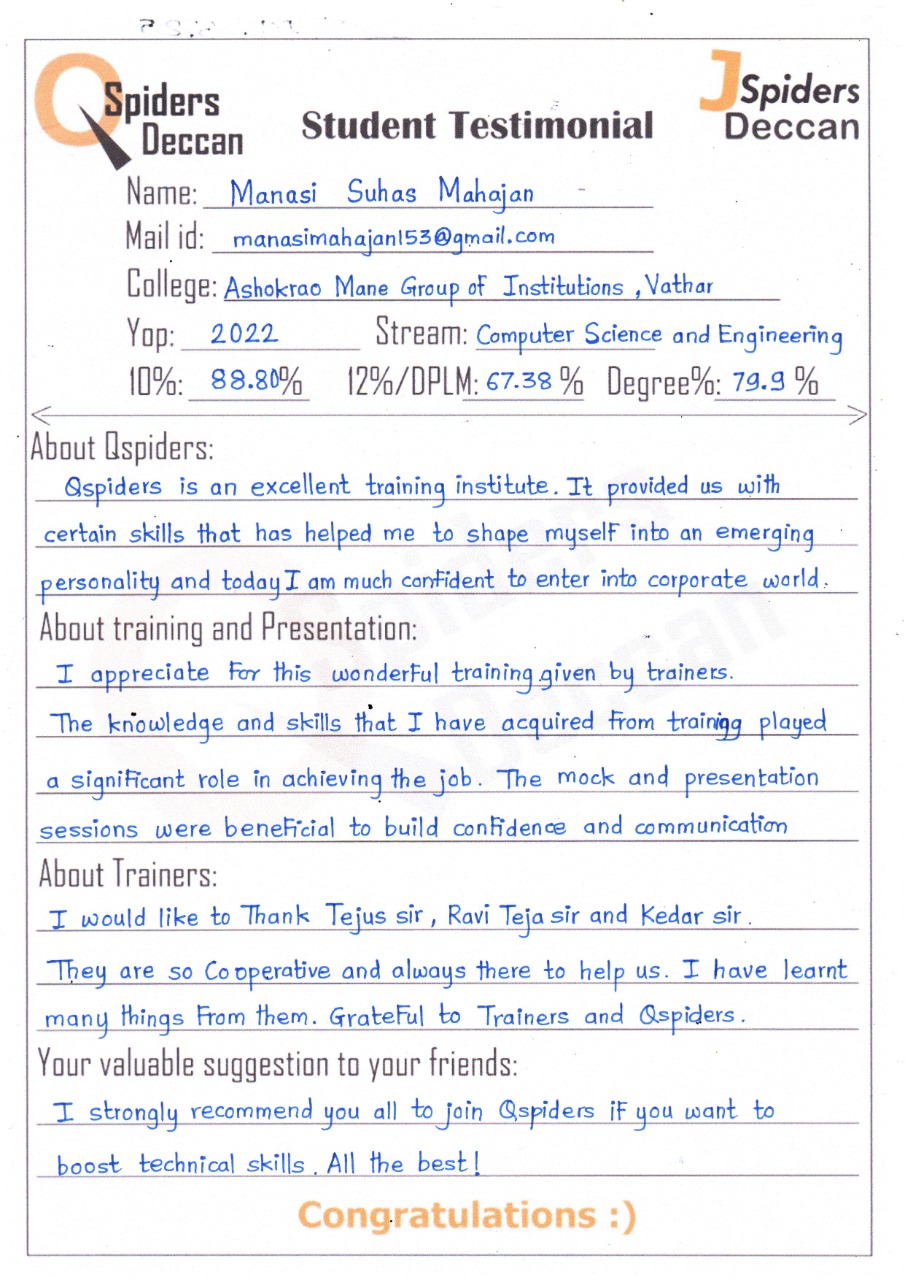 QSpiders
Deccan
Student Testimonial
JSpiders
Deccan
Name: Manasi Suhas Mahajan
Mail id: manasimahajan153@gmail.com
College: Ashokrao Mane Group of Institutions , Vathar
Yop: 2022 Stream: Computer Science and Engineering
10%: 88.80% 12%/DPLM: 67.38 % Degree%: 79.9 %
About Qspiders:
Qspiders is an excellent training institute. It provided us with
certain skills that has helped me to shape myself into an emerging
personality and today I am much confident to enter into corporate world.
About training and Presentation:
I appreciate for this wonderful training given by trainers.
The knowledge and skills that I have acquired from training played
a significant role in achieving the job. The mock and presentation
sessions were beneficial to build confidence and communication
About Trainers:
I would like to Thank Tejus sir, Ravi Teja sir and Kedar sir.
They are so Cooperative and always there to help us. I have learnt
many things from them. Grateful to Trainers and Qspiders.
Your valuable suggestion to your friends:
I strongly recommend you all to join Qspiders if you want to
boost technical skills. All the best!
Congratulations :)